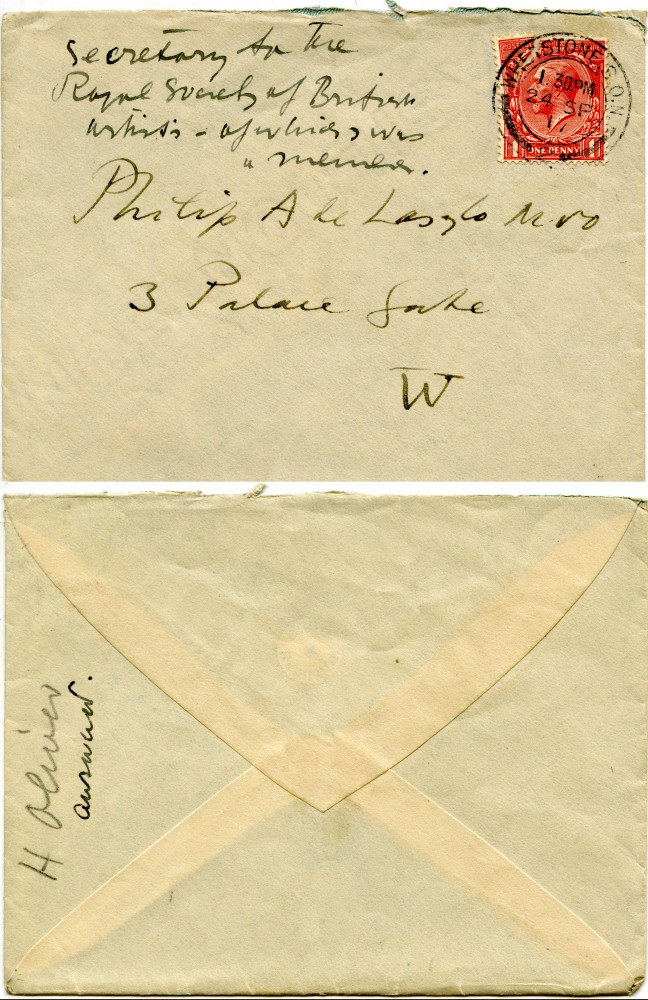 Secretary to the
Royal Society of British
Artists - of which I was
a member.
Philip A de Laszlo MVO
3 Palace Gate
W
POSTAGE
ONE PENNY
1 1
WHETSTONE S.O.N.
1.30PM
24 SP
17
H Oliver
answered.